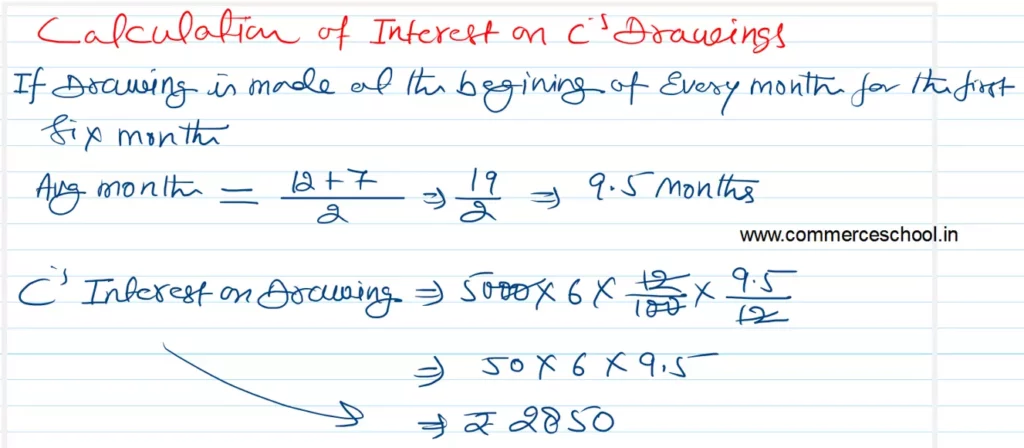 Calculation of Interest on C's Drawings
If Drawing is made at the begining of Every month for the first
six month
Avg month = 12+7/2 ⇒ 19/2 ⇒ 9.5 months
www.commerceschool.in
C's Interest on Drawing ⇒ 5000 × 6 × 12/100 × 9.5/12
⇒ 50 × 6 × 9.5
⇒ ₹ 2850